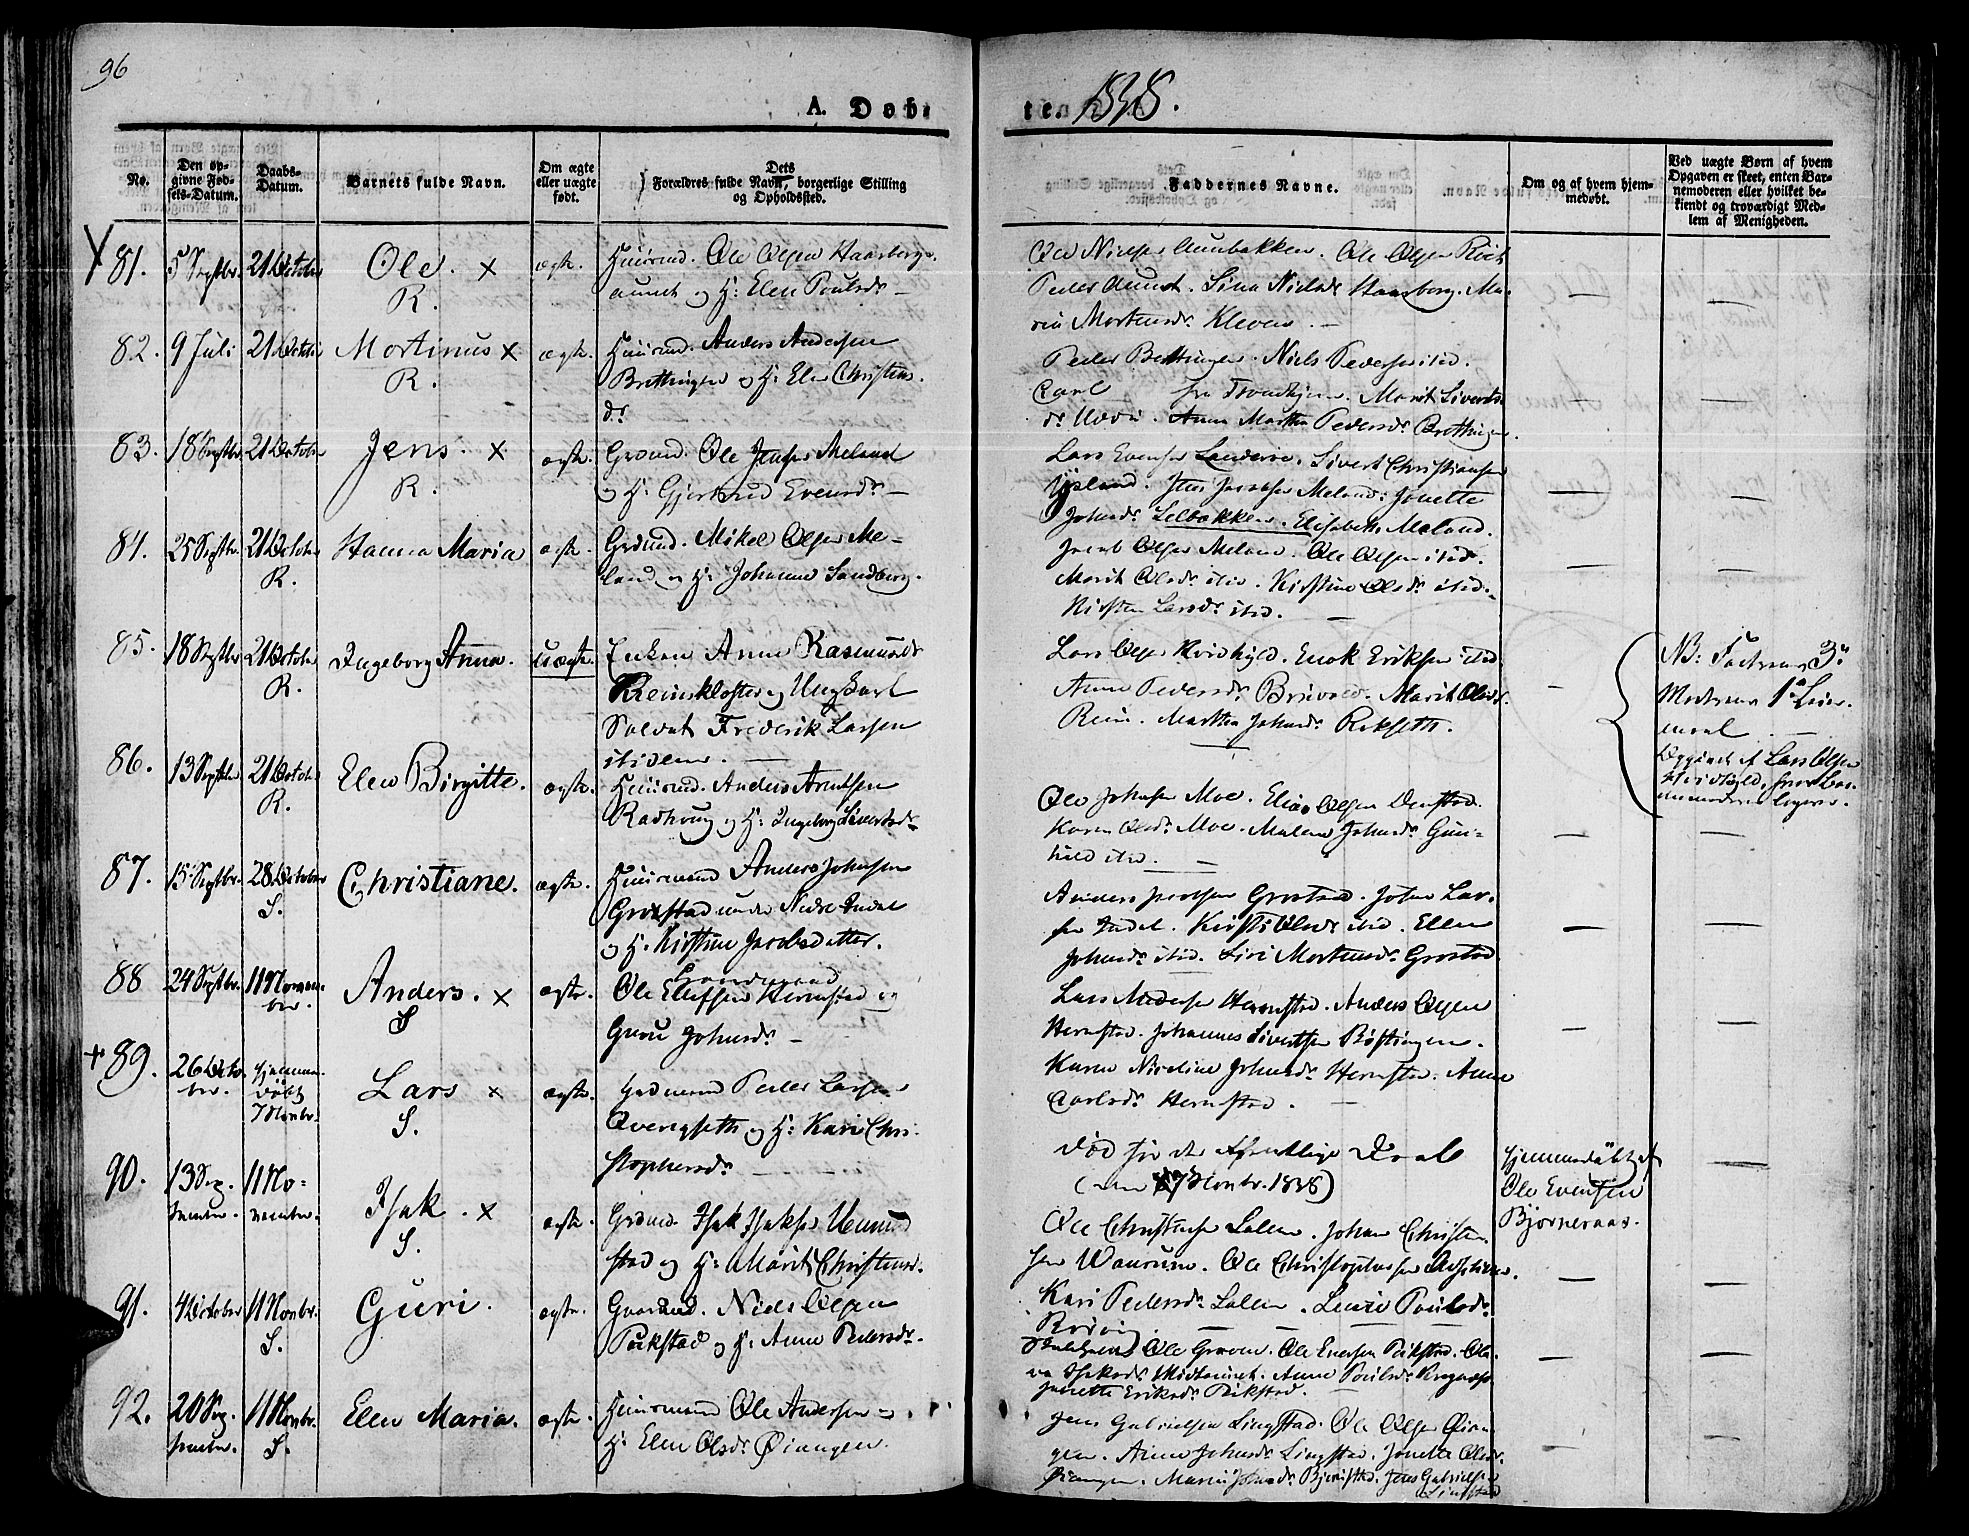 96
A. Døbte 1838.
No.
Den opgivne Fødsels-Datum.
Daabs-Datum.
Barnets fulde Navn.
Om ægte eller uægte født.
Dets Forældres fulde Navn, borgerlige Stilling og Opholdssted.
Faddernes Navne.
Om og af hvem hjemmedøbt.
Ved uægte Børn af hvem Opgaven er skeet, enten Barnemoderen eller hvilket bekiendt og troværdigt Medlem af Menigheden.
81. 5 Septbr. 21 October Ole. x ægte.
R.
Huusmd. Ole Olsen Haarberg-
aunet og H: Elen Poulsdr –
Ole Nielsen Aunbakken. Ole Olsen
Peder Aunet. Sina Nielsdr Haarberg. Ma-
ren Mortensdr. Kleven. –
82. 9 Juli 21 October Mortinus x ægte.
R.
Huusmd. Anders Andersen
Brettingen og H: Elen Christens
dr
Peder Brettingen. Niels Pedersen isted.
Carl fra Trondhjem. Marit Siverts
dr Uddu. Anne Martha Pedersdr Brettingen.
83. 18 Septbr. 21 October Jens. x ægte.
R.
Grdmd. Ole Jensen Meland
og H: Gjertrud Evensdr –
Lars Evensen Landerøe. Sivert Christiansen
Ysland. Jens Jacobsen Meland. Jonette
Johnsdr Selbækken. Elisabeth Meland.
84. 25 Septbr. 21 October Hanna Maria ægte.
R.
Grdmd. Mikel Olsen Me-
land og H: Johanna Sandberg.
Jacob Olsen Meland. Ole Olsen isted.
Marit Olsdr isted. Kirstine Olsdr isted.
Kirsten Larsdr isted. –
85. 18 Septbr 21 October Ingeborg Anna. Uægte.
R.
Enken Anne Rasmusdr
Reinskloster og Ungkarl
Soldat Frederik Larsen
istedem. –
Lars Olsen Kvidhyld. Enok Eriksen isted
Anne Pedersdr Brevold. Marit Olsdr
Rein. Martha Johnsdr. Reksæth.
NB: Faderens 3die
Moderens 1ste Leier-
maal
Opgivet af Lars Olsen
Hvidhyld, hvor Bar-
nemoderen logerer.
86. 13 Septbr 21 October Elen Birgitte. ægte.
R.
Huusmd. Anders Arntsen
Radhaug og H: Ingeborg Sivertsdr
Ole Johnsen Moe. Elias Olsen Denstad.
Karen Olsdr Moe. Malena Johnsdr. Gun-
hild isted. –
87. 15 Septbr. 28 October Christiane. ægte.
S.
Huusmand Anders Johnsen
Grøstad under Nedre Indal
og H: Kirstine Jacobsdatter.
Anders Jacobsen Grøstad. John Lar-
sen Indal. Kirsti Olsdr isted. Ellen
Johnsdr isted. Siri Mortensdr Grøstad.
88 24 Septbr. 11 Novem-
ber. Anders. x ægte.
S
Grdmand
Ole Eliffsen Hernstad og
Guru Johnsdr –
Lars Andersen Hernstad. Anders Olsen
Hernstad. Johannes Sivertsen Røstingen.
Karen Nicoline Johnsdr Hernstad. Anne
Carlsdr Hernstad. –
+ 89. 26 Octo-
ber. Hjemme-
døbt
7 Novbr. Lars x ægte.
S.
Grdmand Peder Larsen
Overagseth og H: Kari Chri-
stophersdr –
Død før den offentlige Daab
(den 7 Novbr. 1838)
Hjemmedøbt af
Ole Evensen
Bjørneraas.
90. 13 Sep-
tember. 11 No-
vember. Isak. x ægte.
S.
Grdmd. Isak Isaksen Vemund
stad og H: Marit Christensd.
Ole Christensen Salen. Johan Christen-
sen Waurum. Ole Christophersen
Kari Pedersdr Salen. Poulsdr
91. 4 October 11 Novbr. Guri. ægte.
S.
Gaardmd. Niels Olsen
Pukstad og H: Anne Pedersdr.
Ole Grøven. Ole Evensen Pukstad. Ole-
va Isaksdr Midtaunet. Anne Poulsdr
Jonette Eriksdr Pukstad. –
92. 20 Sep-
tember. 11 Novbr. Elen Maria. ægte.
S.
Huusmand Ole Andersen og
H: Elen Olsdr Øiangen.
Jens Gabrielsen Lingstad. Ole Olsen Øian-
gen. Anne Johnsdr Lingstad. Jonette Olsdr
Øiangen. Maria Johnsdr Bjørnstad. Jens Gabrielsen
Lingstad